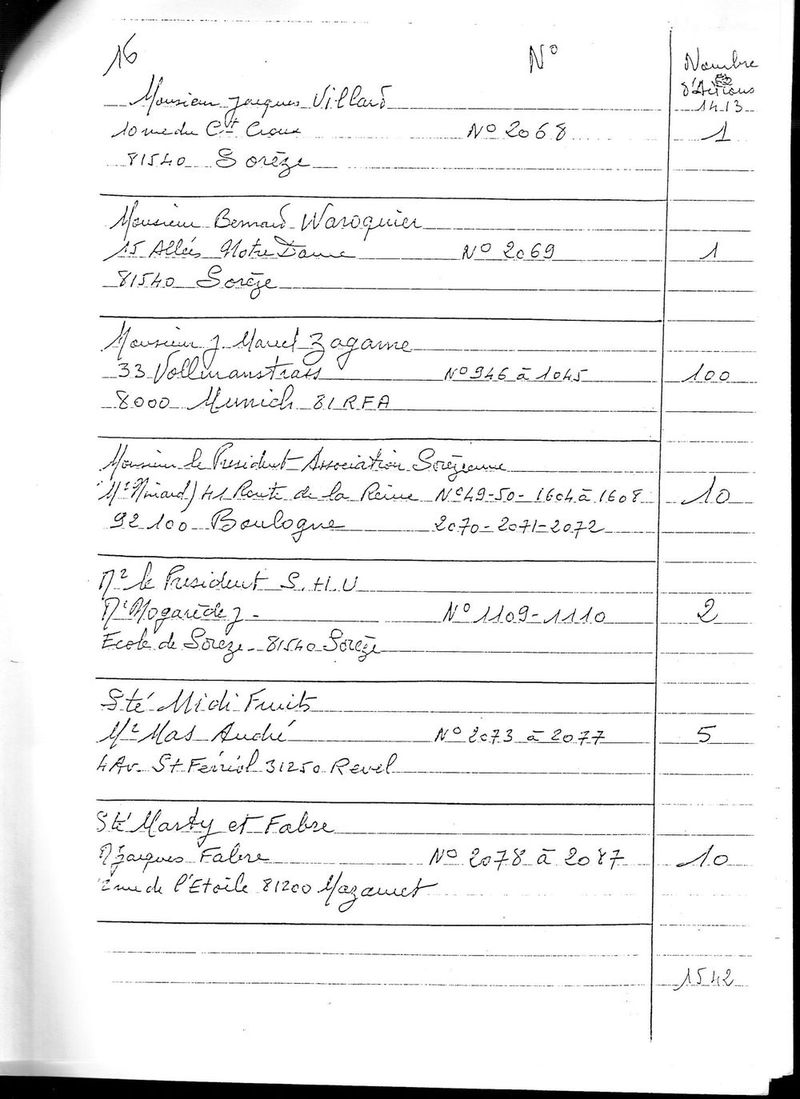 16 N° Nombre
d'Actions
1413
Monsieur Jacques Villard
10 rue du Ct Croux N° 2068 1
81540 Sorèze
Monsieur Bernard Waroquier
15 Allées Notre Dame N° 2069 1
81540 Sorèze
Monsieur J Marcel Zagame
33 Vollmanstrass N° 946 à 1045 100
8000 Munich 81 RFA
Monsieur le President Association Sorèzeanne
41 Route de la Reine N° 49-50-1604 à 1608 10
92100 Boulogne 2070-2071-2072
Mr le President S.H.U
Mr Mogarède J- N° 1109-1110 2
Ecole de Soreze 81540 Sorèze
Sté Midi Fruits
Mr Mas André N° 2073 à 2077 5
4 Av. St Ferriol 31250 Revel
Sté Marty et Fabre
Mr Jacques Fabre N° 2078 à 2087 10
2 rue de l'Etoile 81200 Mazamet
1542